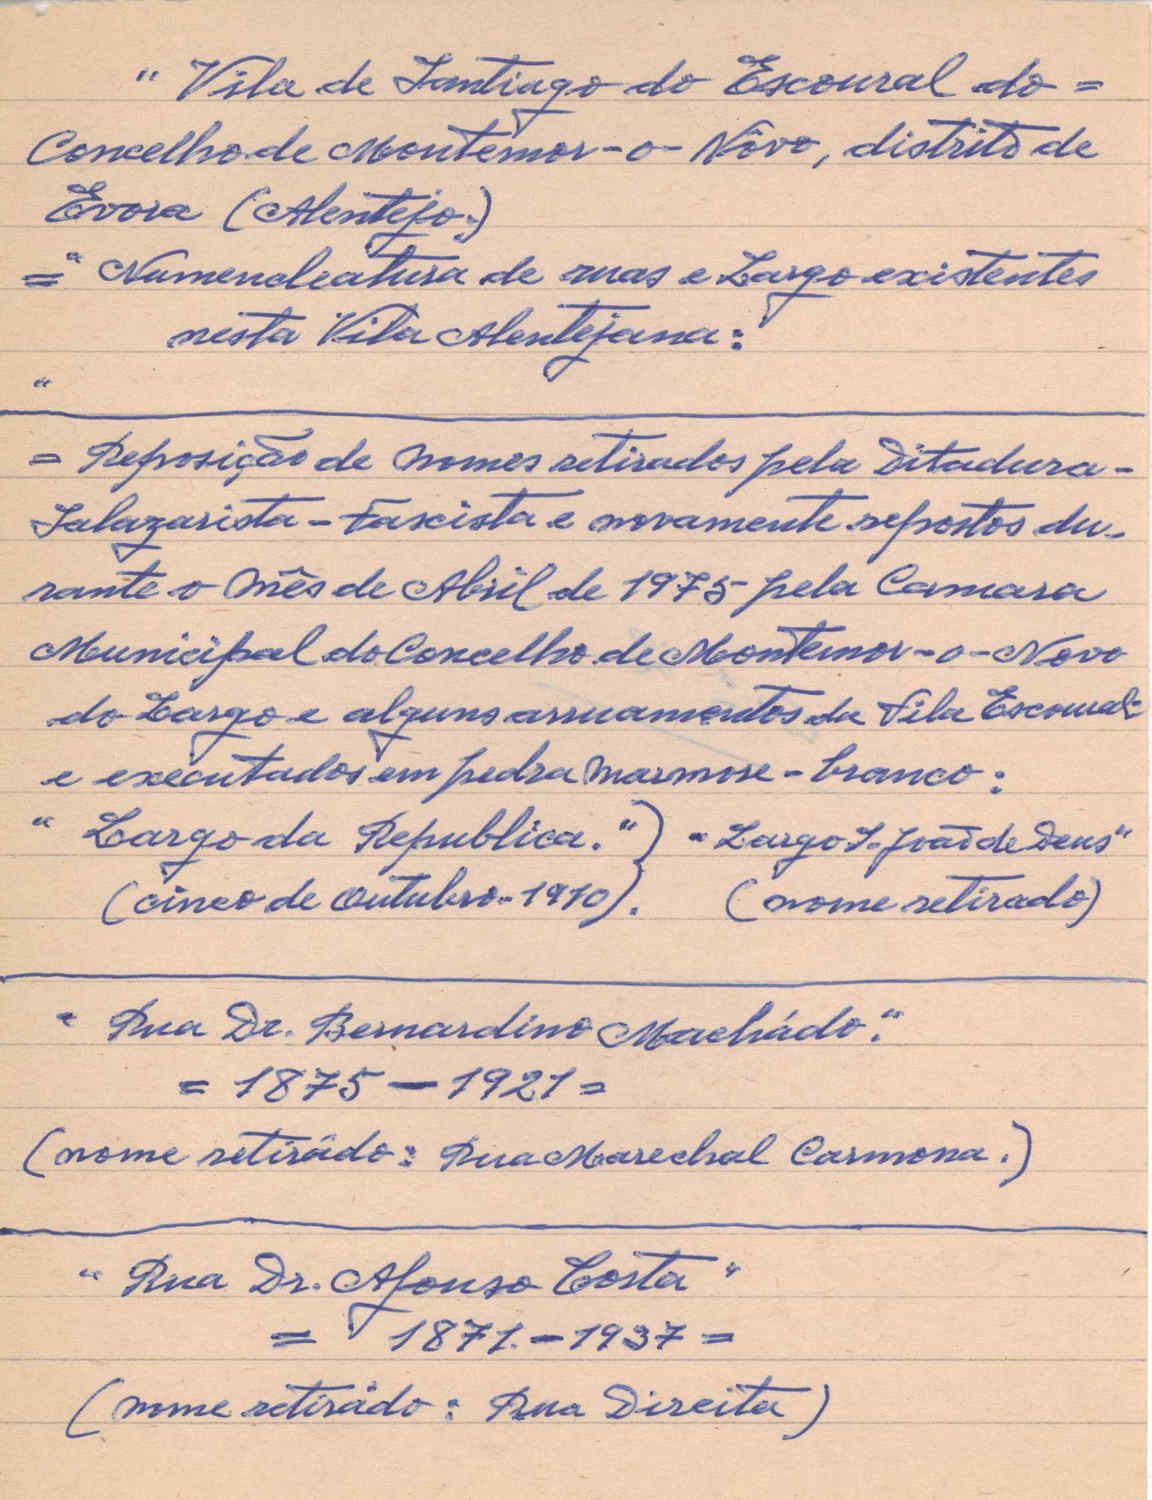 " Vila de Santiago do Escoural do =
Concelho de Montemor-o-Nôvo, distrito de
Evora (Alentejo.)
=" Numencleatura de ruas e Largo existentes
nesta Vila Alentejana:
"
= Reposição de Nomes retirados pela Ditadura-
Salazarista-Fascista e novamente repostos du-
rante o Mês de Abril de 1975 pela Camara
Municipal do Concelho de Montemor-o-Novo
do Largo e alguns arruamentos da Vila Escoural-
e executados em pedra Marmore-branco:
" Largo da Republica.") " Largo S. João de Deus"
(cinco de Outubro-1910). (nome retirado)
" Rua Dr. Bernardino Machádo."
= 1875 - 1921 =
(nome retirádo: Rua Marechal Carmona.)
" Rua Dr. Afonso Costa "
= 1871.-1937 =
(nome retirádo: Rua Direita)